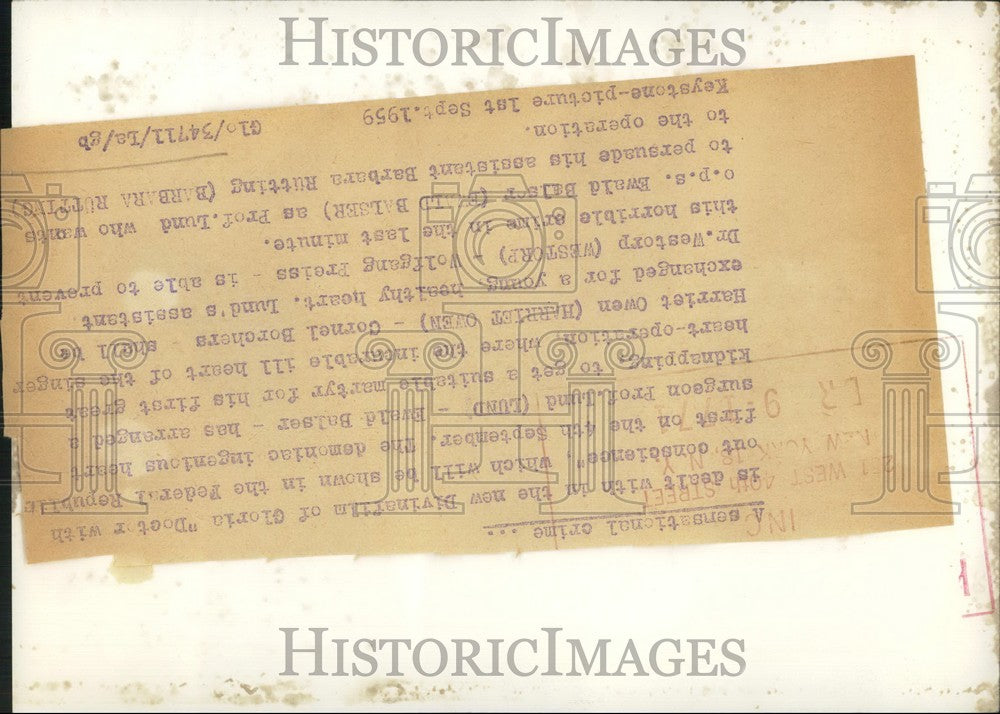 HISTORICIMAGES
A sensational crime ...
is dealt with in the new Divinafilm of Gloria "Doctor with
out conscience", which will be shown in the Federal Republik
first on the 4th September. The demoniac ingenious heart
surgeon Prof.Lund (LUND) - Ewald Balser - has arranged a
kidnapping, to get a suitable martyr for his first great
heart-operation where the incurable ill heart of the singer
Harriet Owen (HARRIET OWEN) - Cornel Borchers shall be
exchanged for a young, healthy heart. Lund's assistant
Dr.Westorp (WESTORP) - Wolfgang Preiss - is able to prevent
this horrible crime in the last minute.
o.p.s. Ewald Balser (EWALD BALSER) as Prof.Lund who wants
to persuade his assistant Barbara Rütting (BARBARA RÜTTING)
to the operation.
Keystone-picture 1st Sept.1959 Glo/34711/La/gb
INC
WEST STREET
NEW YORK N.Y.
HISTORICIMAGES